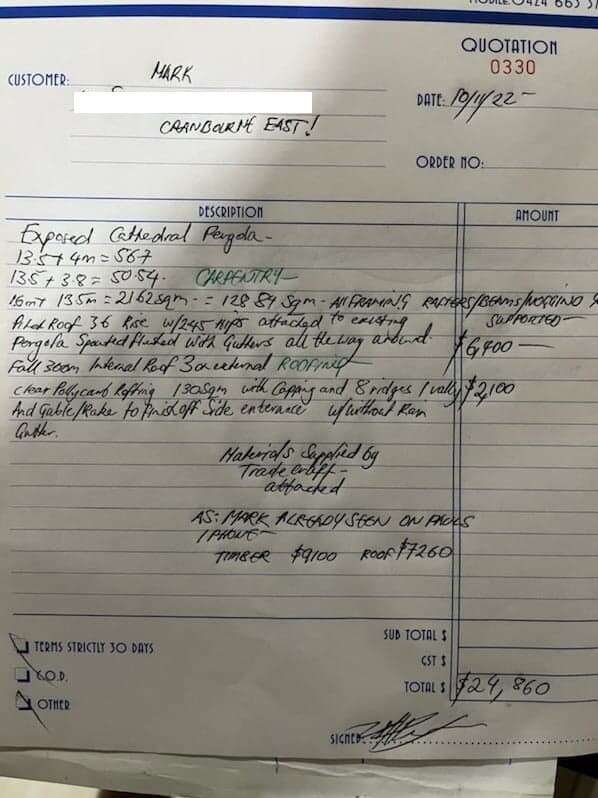 MOBILE: 0424 663
QUOTATION
0330
CUSTOMER: MARK
DATE: 10/11/22 -
CRANBOURNE EAST!
ORDER NO:
DESCRIPTION
AMOUNT
Exposed Cathedral Pergola -
13.5 + 4m = 567
13.5 + 3.8 = 50.54. CARPENTRY -
16m+ 13.5m = 2162sqm - = 128 84 Sqm - All FRAMING RAFTERS/BEAMS/NOGGING &
SUPPORTED -
Roof 36 Rise w/245 Hips attached to existing
Pergola Spouted flushed with Gutters all the way around. $6,400 -
Fall 300m Internal Roof 3 on external ROOFING
Clear Pollycarb Rofting 130Sqm with Capping and 8 ridges 1 vally $2,100
And Gable/Raker to finish off Side enterance w/without Rain
Gutter.
Materials Supplied by
Tradecraft -
attached
AS: MARK ALREADY SEEN ON PAULS
IPHONE -
TIMBER $9100 ROOF $7260
SUB TOTAL $
TERMS STRICTLY 30 DAYS
GST $
C.O.D.
TOTAL $ $24,860
OTHER
SIGNED: